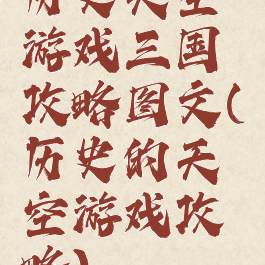 历史天空
游戏三国
攻略图文(
历史的天
空游戏攻
略)